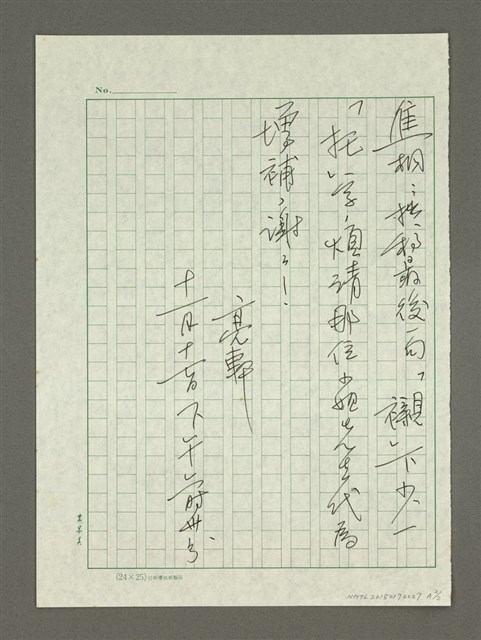 No.
焦桐：拙稿最後一句「襯」下少一
「托」字，煩請那位小姐先生代為
增補，謝謝！
亮軒
十一月十一日下午一時卅分
(24×25)
NMTL20150170027 A 2/2